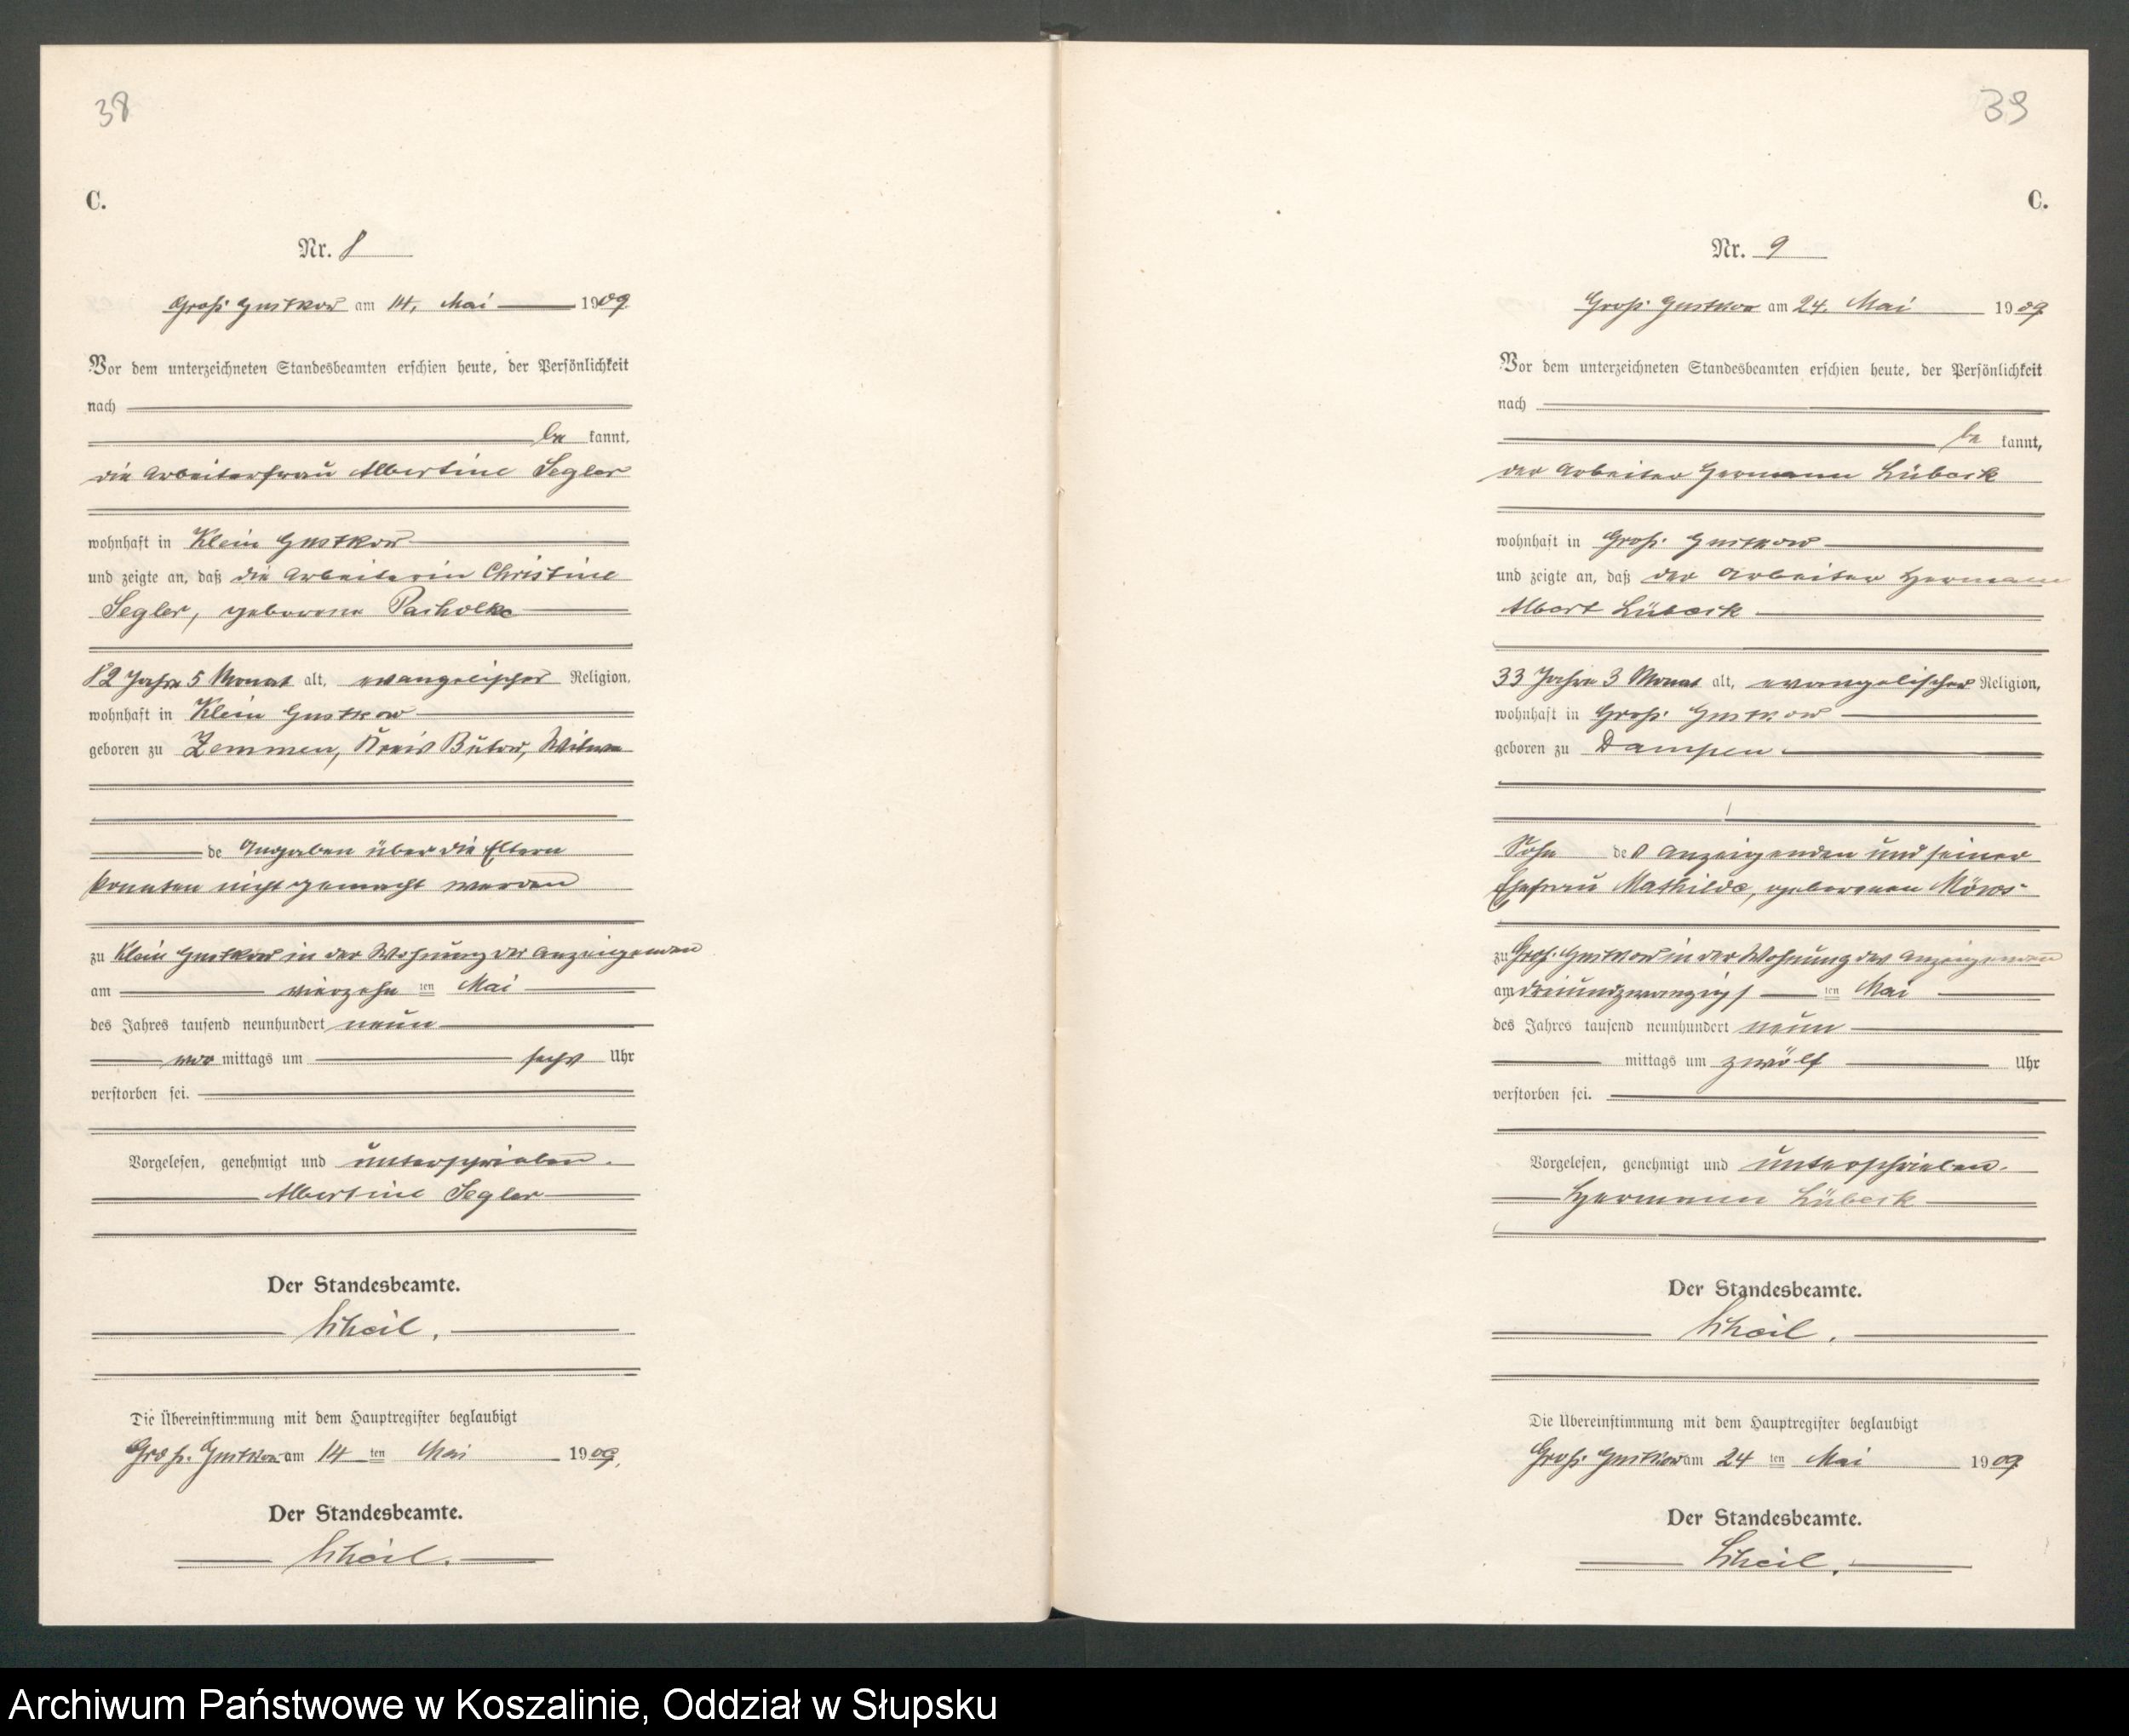 38
C.
Nr. 8
Groß Gustkow am 14. Mai 1909
Vor dem unterzeichneten Standesbeamten erschien heute, der Persönlichkeit
nach
be kannt,
die Arbeiterfrau Albertine Segler
wohnhaft in Klein Gustkow
und zeigte an, daß die Arbeiterin Christine
Segler, geborene Pacholke
82 Jahre 5 Monat alt, evangelischer Religion,
wohnhaft in Klein Gustkow
geboren zu Zemmen, Kreis Bütow, Witwe
de Angaben über die Eltern
konnten nicht gemacht werden
zu Klein Gustkow in der Wohnung der Anzeigenden
am vierzehn ten Mai
des Jahres tausend neunhundert neun
vor mittags um sechs Uhr
verstorben sei.
Vorgelesen, genehmigt und unterschrieben.
Albertine Segler
Der Standesbeamte.
Die Übereinstimmung mit dem Hauptregister beglaubigt
Groß. Gustkow am 14 ten Mai 1909.
Der Standesbeamte.
39
C.
Nr. 9
Groß Gustkow am 24. Mai 1909
Vor dem unterzeichneten Standesbeamten erschien heute, der Persönlichkeit
nach
be kannt,
der Arbeiter Hermann Lübeck
wohnhaft in Groß Gustkow
und zeigte an, daß der Arbeiter Hermann
Albert Lübeck
33 Jahre 3 Monat alt, evangelischer Religion,
wohnhaft in Groß Gustkow
geboren zu Dampen
Sohn des Anzeigenden und seiner
Ehefrau Mathilde, geborenen
zu Groß Gustkow in der Wohnung des Anzeigenden
am dreiundzwanzigs ten Mai
des Jahres tausend neunhundert neun
mittags um zwölf Uhr
verstorben sei.
Vorgelesen, genehmigt und unterschrieben.
Hermann Lübeck
Der Standesbeamte.
Die Übereinstimmung mit dem Hauptregister beglaubigt
Groß Gustkow am 24 ten Mai 1909
Der Standesbeamte.
Archiwum Państwowe w Koszalinie, Oddział w Słupsku